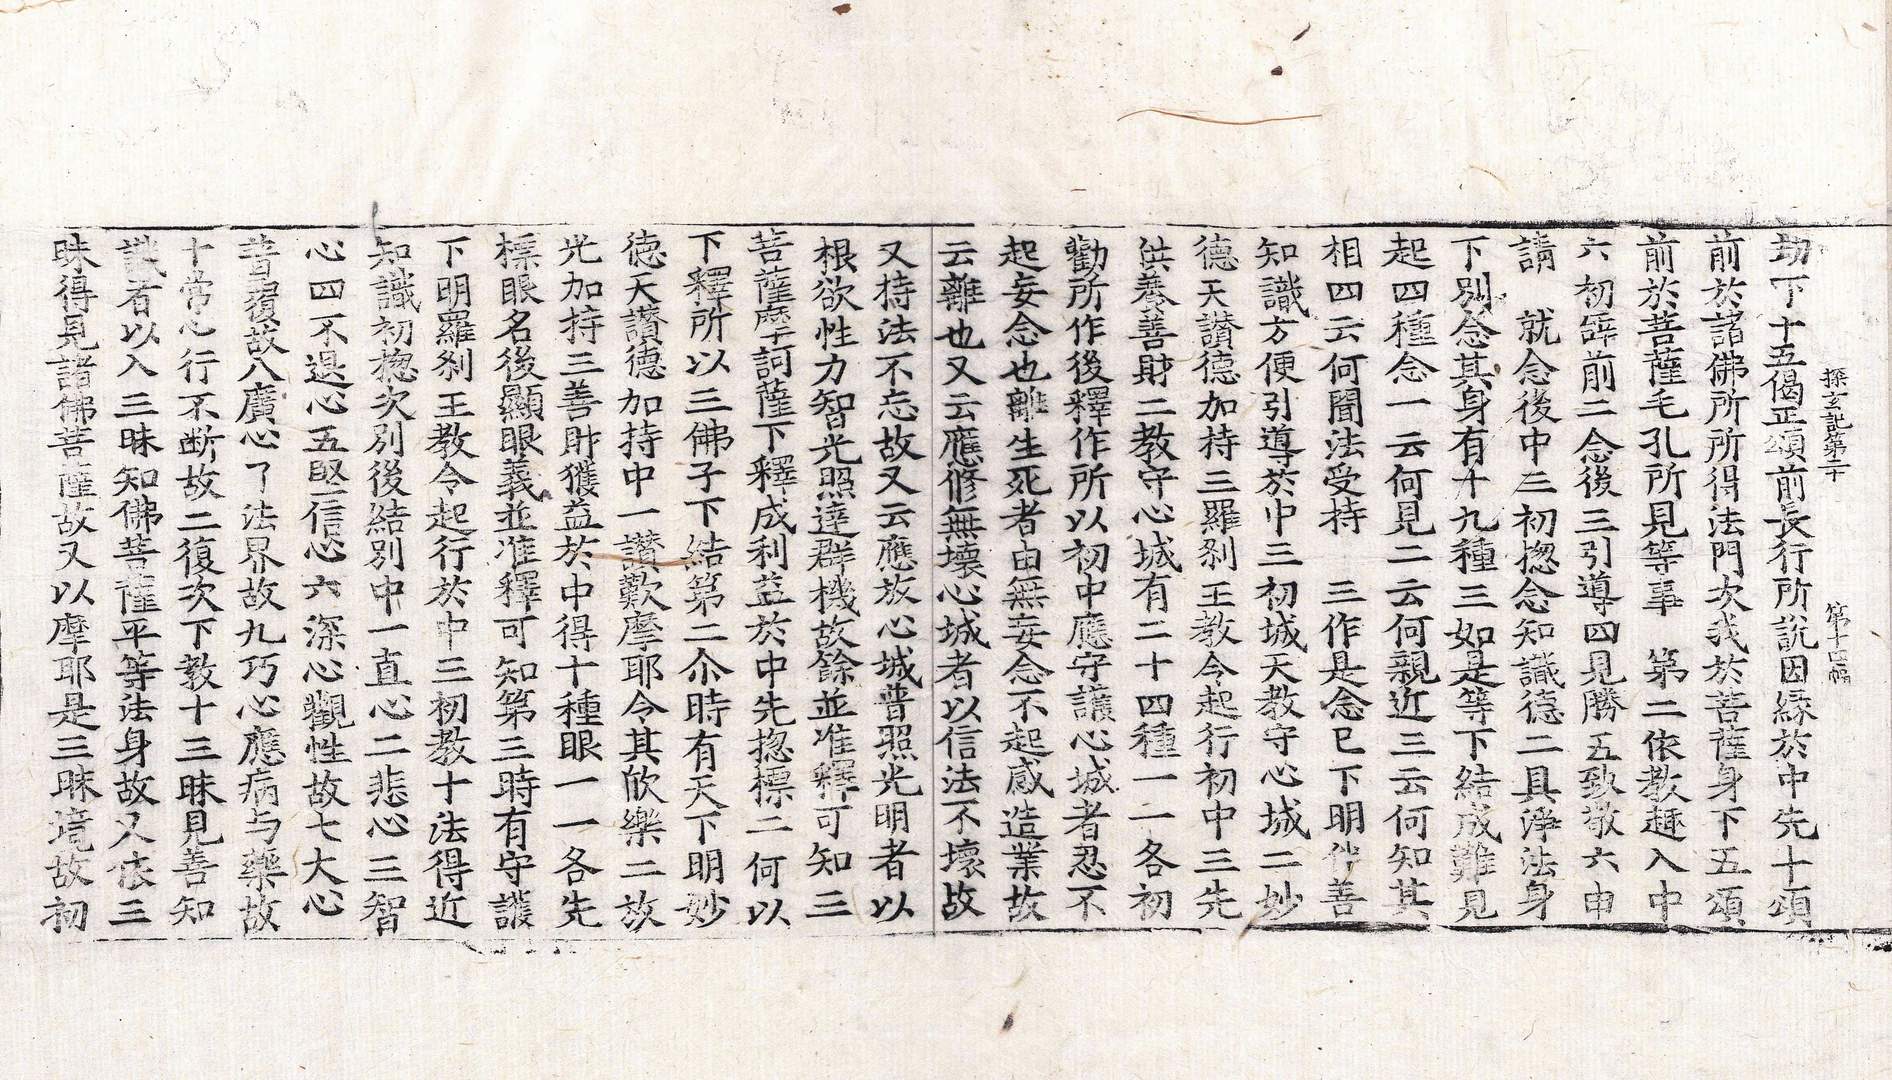 探玄記第二十　第十四幅
劫下十五偈正頌前長行所說因緣於中先十頌
前於諸佛所所得法門次我於菩薩身下五頌
前於菩薩毛孔所見等事　第二依教趣入中
六初辞前二念後三引導四見勝五致敬六申
請　就念後中三初揔念知識德二具淨法身
下別念其身有十九種三如是等下結成難見
起四種念一云何見二云何親近三云何知其
相四云何聞法受持　三作是念已下明伴善
知識方便引導於中三初城天教守心城二妙
德天讃德加持三羅刹王教令起行初中三先
供養善財二教守心城有二十四種一一各初
勸所作後釋作所以初中應守護心城者忍不
起妄念也離生死者由無妄念不起惑造業故
云離也又云應修無壞心城者以信法不壞故
又持法不忘故又云應放心城普照光明者以
根欲性力智光照達群機故餘並准釋可知三
菩薩摩訶薩下釋成利益於中先揔標二何以
下釋所以三佛子下結第二尒時有天下明妙
德天讃德加持中一讃歎摩耶令其欣樂二放
光加持三善財獲益於中得十種眼一一各先
標眼名後顯眼義並准釋可知第三時有守護
下明羅刹王教令起行於中三初教十法得近
知識初揔次別後結別中一直心二悲心三智
心四不退心五堅信心六深心觀性故七大心
普覆故八廣心了法界故九巧心應病与藥故
十常心行不断故二復次下教十三昧見善知
識者以入三昧知佛菩薩平等法身故又依三
昧得見諸佛菩薩故又以摩耶是三昧境故初